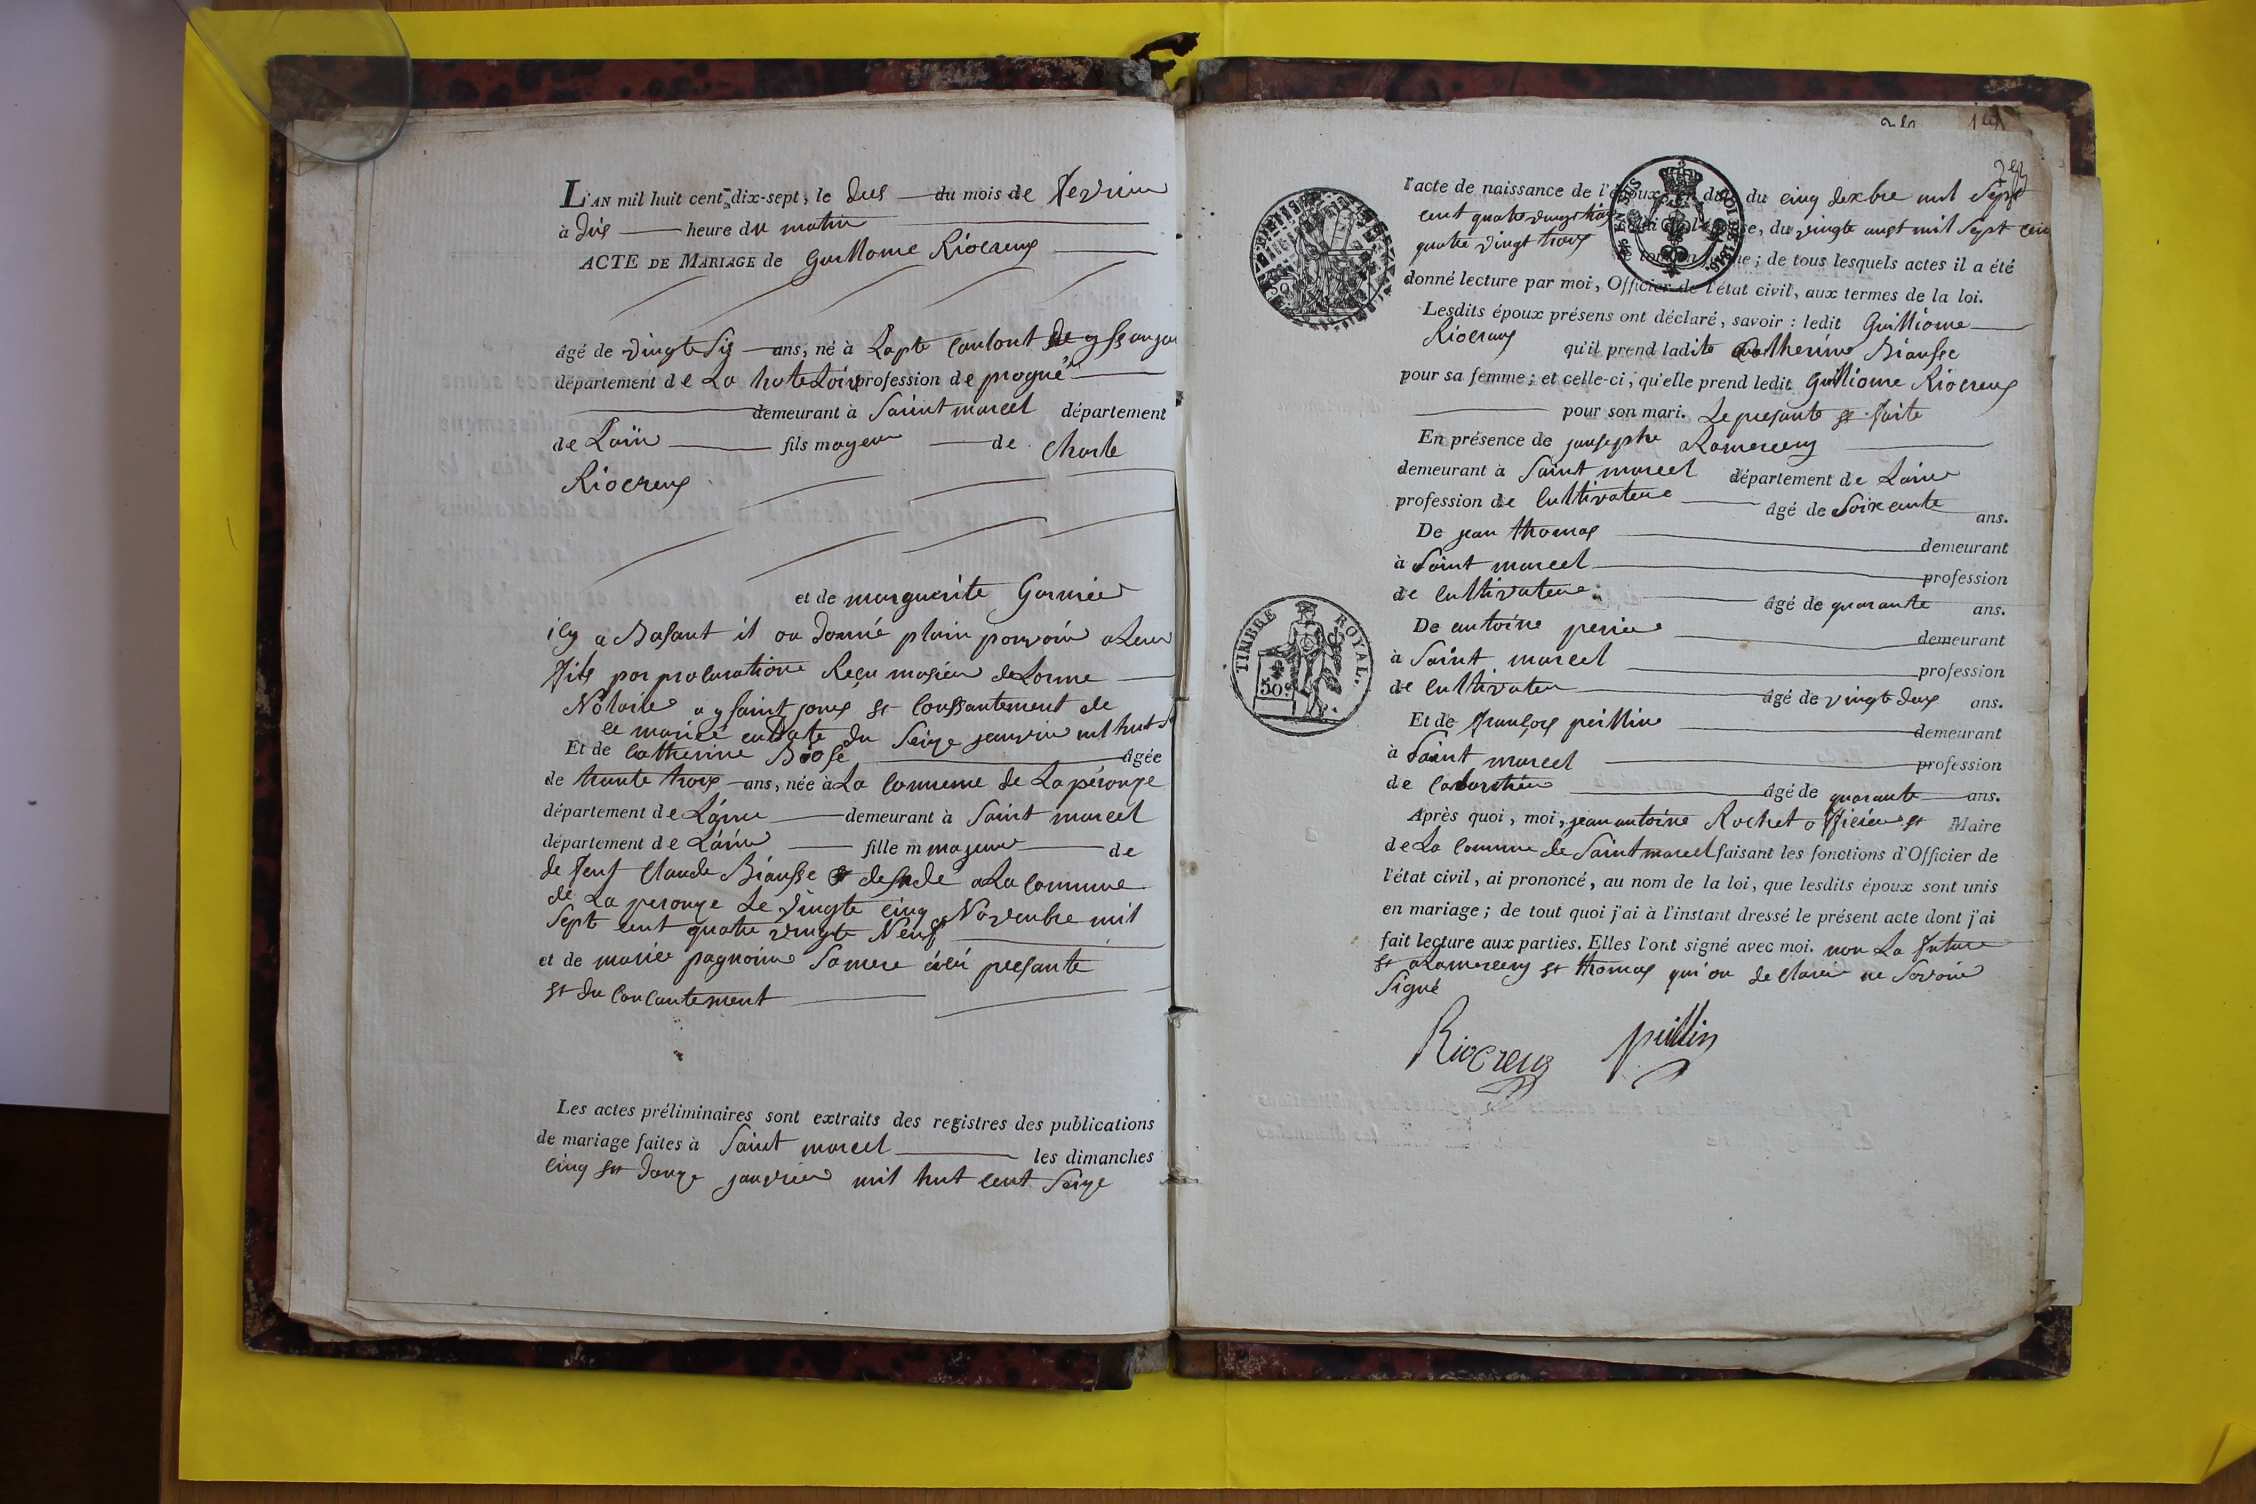 L'AN mil huit cent dix-sept, le dus du mois de fevrier
à dis heure du matin
ACTE DE MARIAGE de Guillaume Riocreux
âgé de vingte sis ans, né à Lapte
département de La hote Loire profession de
demeurant à Saint marcel département
de Lain fils mageur de Charle
Riocreux
et de marguerite Garnier
ily a Basant il on donné plain pouvoir a Leur
fils par procuratione Reçu mosieu deLorme
Notaire a ysaint st Conssantement de
ce mariée en Date du Seize janvier mil huit
Et de Catherine Biose âgée
de trante trois ans, née à La Commune de La pérouze
département de L'ainu demeurant à Saint marcel
département de L'ainu fille m mageure de
de feut Claude Biausse desede a La Commune
de La perouze Le vingte cinq Novembre mil
Sept cent quatre vingte Neuf
et de mariée pagnoine Samere ici presante
st du Concantement
Les actes préliminaires sont extraits des registres des publications
de mariage faites à Saint marcel les dimanches
cinq st douze janvier mil huit cent Seize
l'acte de naissance de l'époux du cinq dexbre mil Sept
cent quatre vingt
quatre vingt trois se, du vingte aust mil Sept cen
; de tous lesquels actes il a été
donné lecture par moi, Officier de l'état civil, aux termes de la loi.
Lesdits époux présens ont déclaré, savoir : ledit Guilliome
Riocreux qu'il prend ladite Catherine Biausse
pour sa femme; et celle-ci, qu'elle prend ledit Guilliome Riocreux
pour son mari. Le presante st faite
En présence de jausephe aLamercery
demeurant à Saint marcel département de Lainu
profession de Cultivateure âgé de Soixcante ans.
De jean thomas demeurant
à Saint marcel profession
de Cultivateure âgé de quarante ans.
De antoine perier demeurant
à Saint marcel profession
de Cultivateu âgé de vingt deux ans.
Et de françois peilline demeurant
à Saint marcel profession
de âgé de quarante ans.
Après quoi, moi, jean antoine Rochet officieu st Maire
de La Commune de Saint marcel faisant les fonctions d'Officier de
l'état civil, ai prononcé, au nom de la loi, que lesdits époux sont unis
en mariage; de tout quoi j'ai à l'instant dressé le présent acte dont j'ai
fait lecture aux parties. Elles l'ont signé avec moi. non La future
st aLamercery st thomas qui on de Clarée ne Savoir
Signé
Riocreux peillin
TIMBRE ROYAL.
50 c